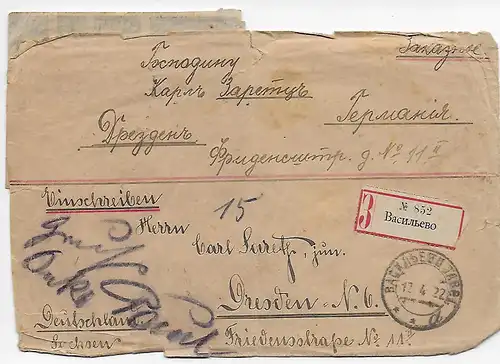 Заказное
Господину
Карлъ Заретцъ
Германія.
Дрезденъ.
Фриденсштр. д. № 11 II
Einschreiben
15
З
№ 852
Васильево
Herrn
Carl Saretz, jun.
Dresden - N. 6.
Friedensstraße No. 11 II
Deutschland
Sachsen
12 4 22